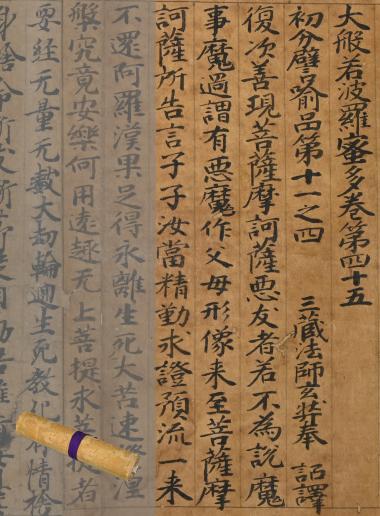 大般若波羅蜜多卷第四十五
初分譬喻品第十一之四 三藏法師玄奘奉 詔譯
復次善現菩薩摩訶薩悪友者若不為說魔
事魔過謂有悪魔作父母形像来至菩薩摩
訶薩所告言子子汝當精勤求證預流一来
不還阿羅漢果足得永離生死大苦速證涅
槃究竟安樂何用遠趣无上菩提求菩提者
要經无量无數大劫輪迴生死教化有情捨
身捨命